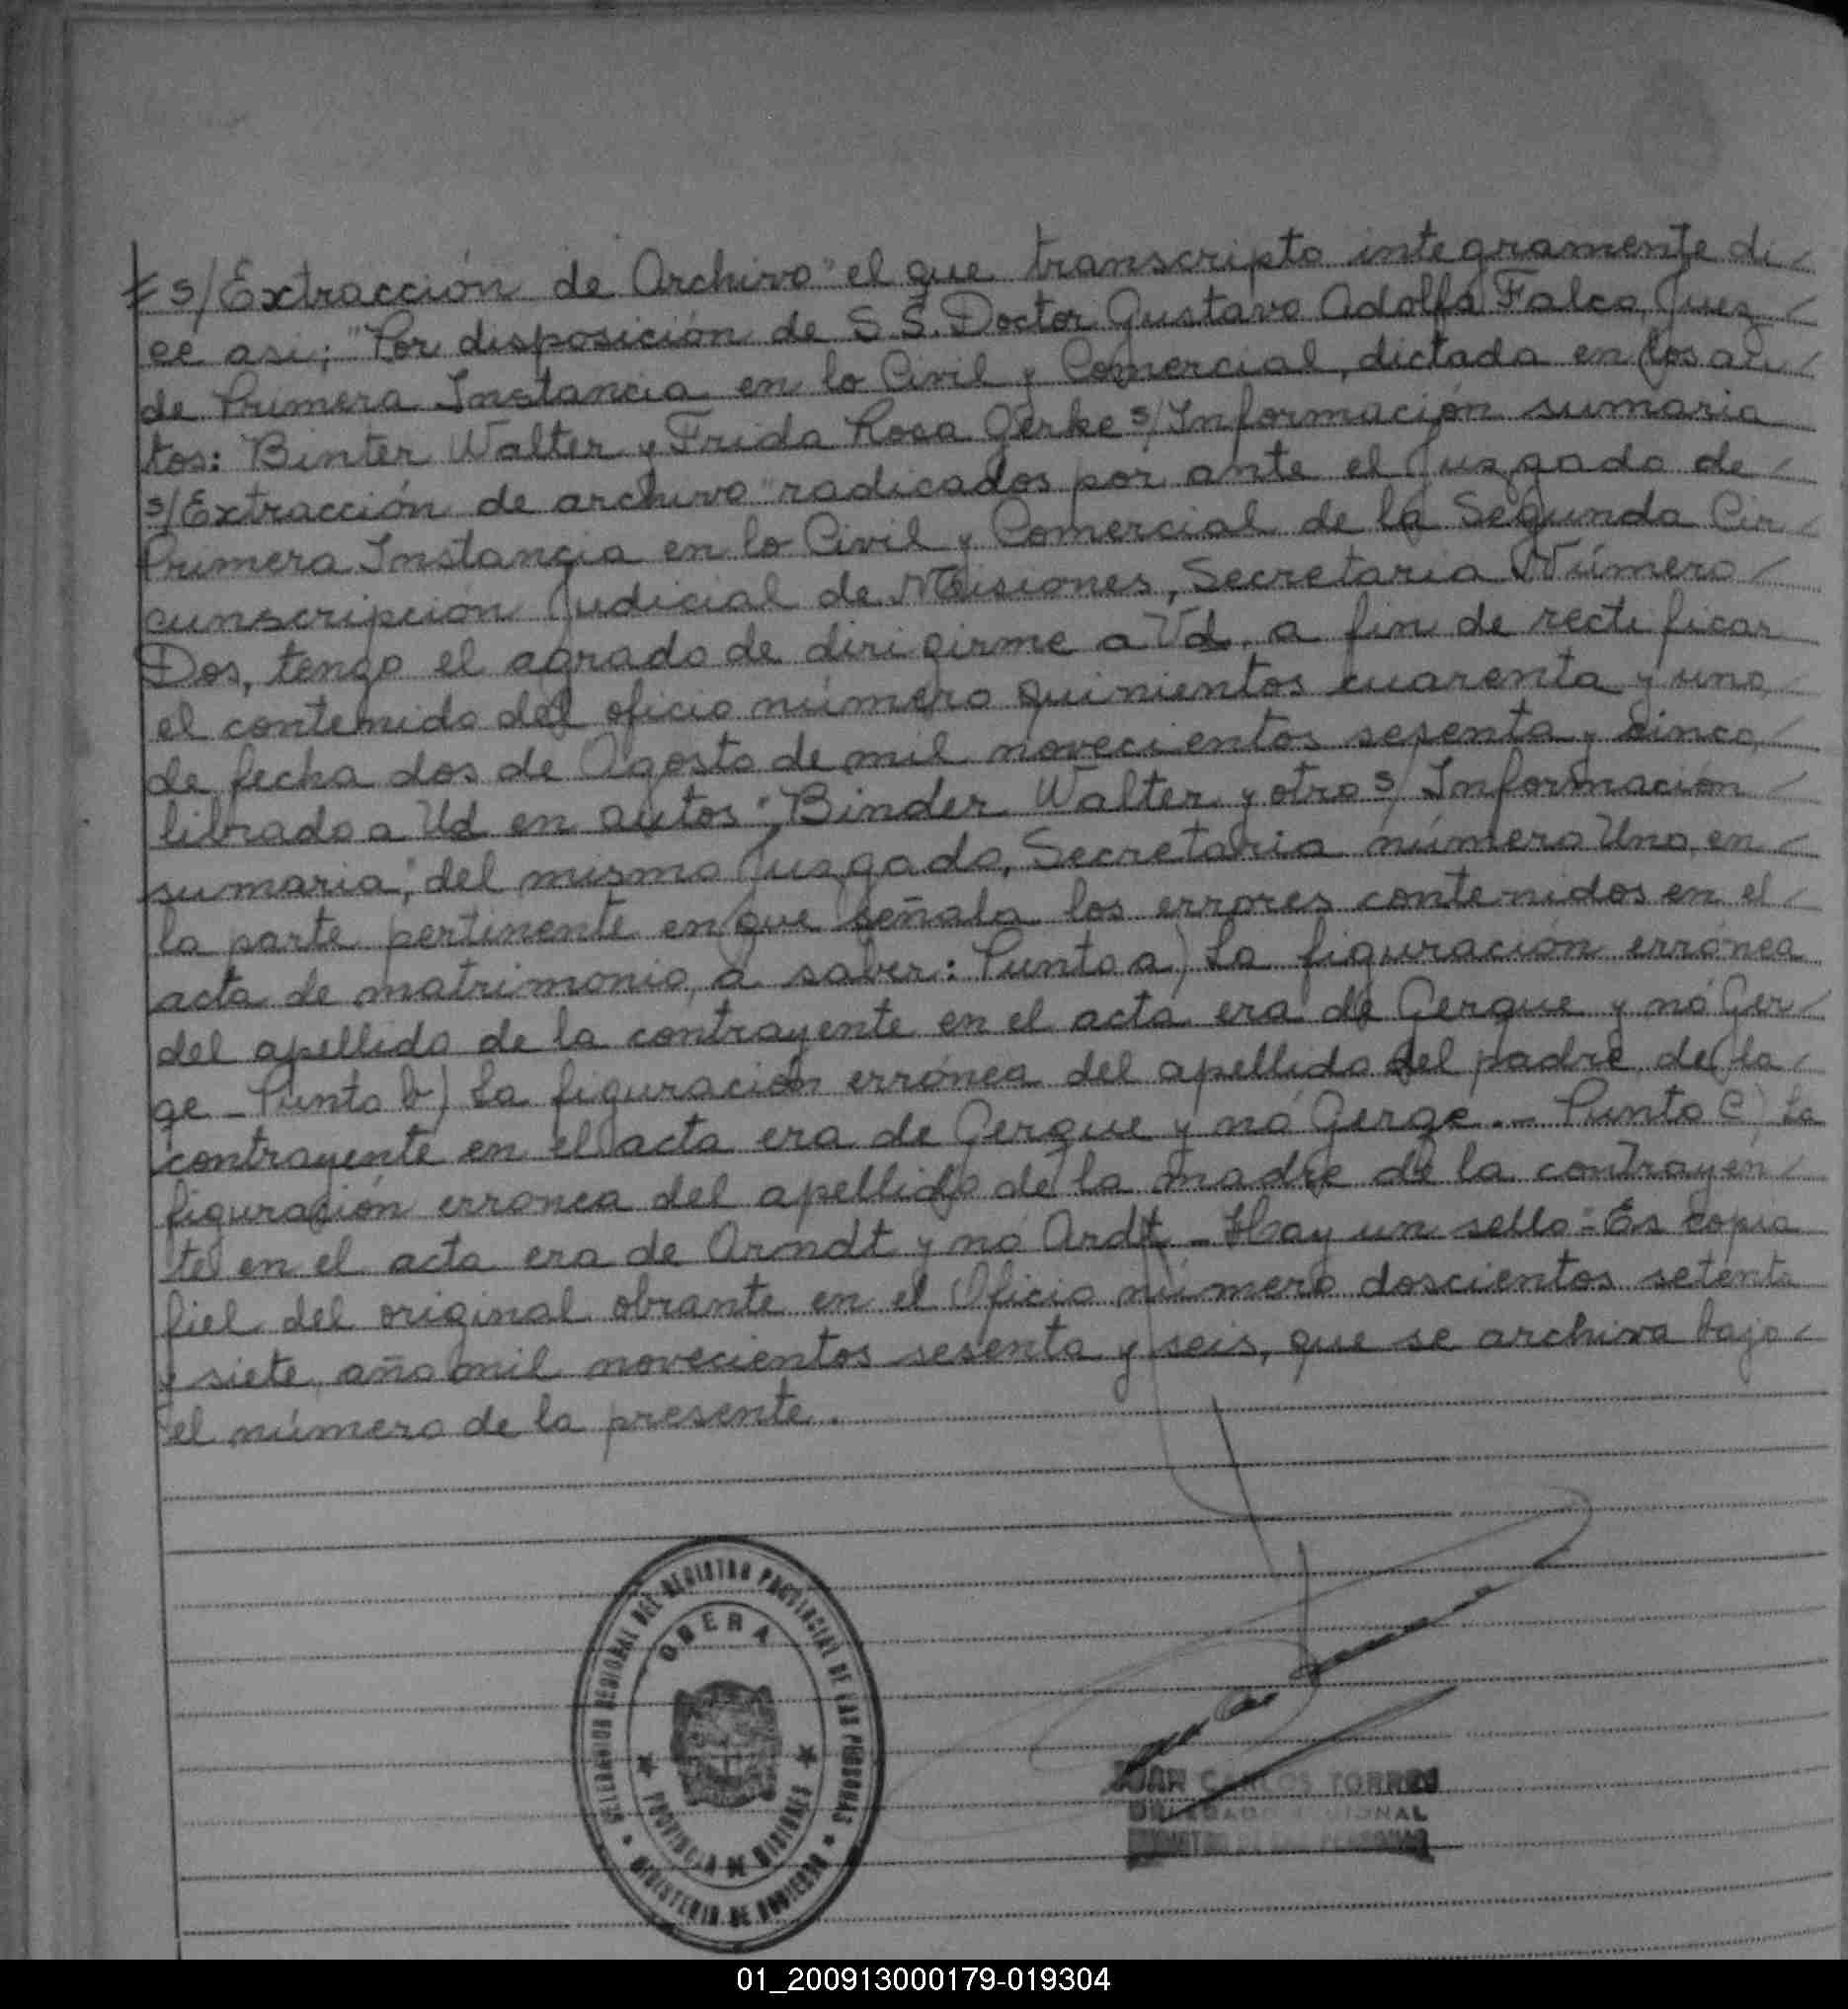 s/Extracción de Archivo" el que transcripto integramente di-
ce asi; "Por disposición de S.S. Doctor Gustavo Adolfo Falco, Juez
de Primera Instancia en lo Civil y Comercial, dictada en los au-
tos: Binter Walter y Frida Rosa Gerke s/Información sumaria
s/Extracción de archivo" radicados por ante el Juzgado de
Primera Instancia en lo Civil y Comercial de la Segunda Cir-
cunscripción Judicial de Misiones, Secretaria Número
Dos, tengo el agrado de dirigirme a Vd. a fin de rectificar
el contenido del oficio número quinientos cuarenta y uno,
de fecha dos de Agosto de mil novecientos sesenta y cinco,
librado a Ud en autos "Binder Walter y otro s/Información
sumaria", del mismo Juzgado, Secretaria número Uno, en
la parte pertinente en que señala los errores contenidos en el
acta de matrimonio, a saber: Punto a) La figuración errónea
del apellido de la contrayente en el acta era de Gerque y nó Ger-
ge - Punto b) La figuración errónea del apellido del padre de la
contrayente en el acta era de Gerque y nó Gerge.- Punto c) La
figuración erronea del apellido de la madre de la contrayen-
te en el acta era de Arndt y nó Ardt - Hay un sello - Es copia
fiel del original obrante en el Oficio número doscientos setenta
y siete, año mil novecientos sesenta y seis, que se archiva bajo
el número de la presente.
DELEGACION REGIONAL DEL REGISTRO PROVINCIAL DE LAS PERSONAS
OBERA
PROVINCIA DE MISIONES
MINISTERIO DE GOBIERNO
JUAN CARLOS TORRES
DELEGADO REGIONAL
REGISTRO DE LAS PERSONAS
01_200913000179-019304